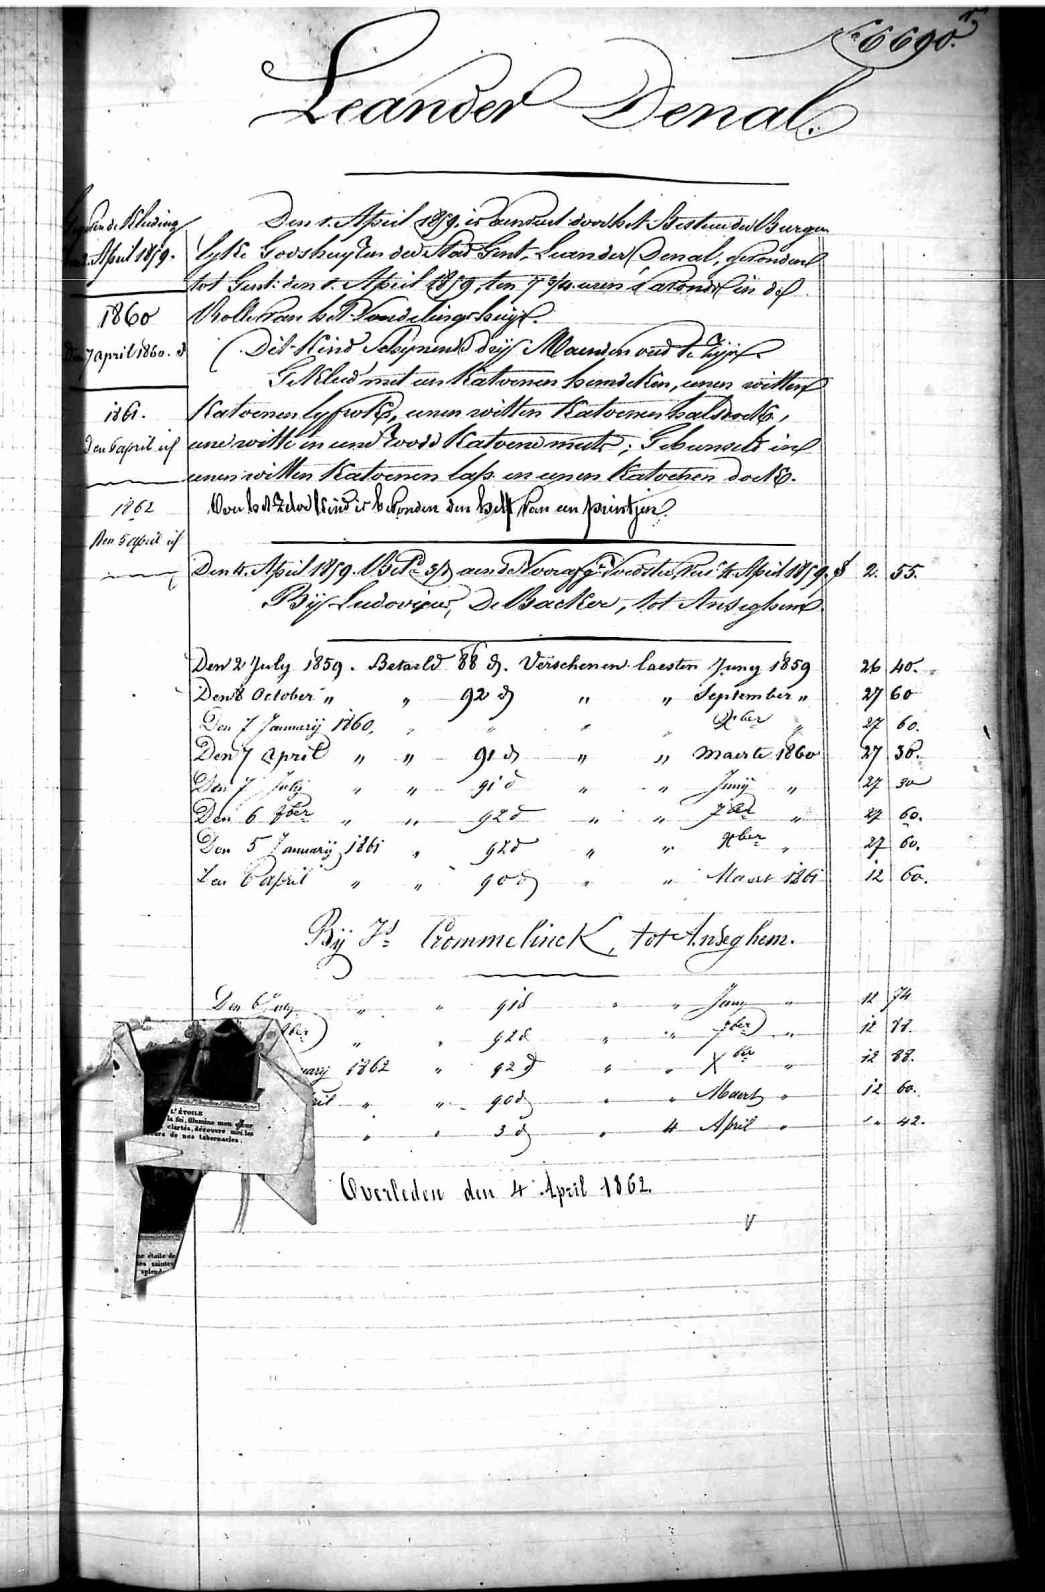 N.° 6690.
Leander Denal.
Den 1. April 1859, is besteed door het Bestuur der Burger
lyke Godshuyzen der Stad Gent, Leander Denal, gevonden
tot Gent: den 1. April 1859, ten 7 3/4 uren 's avonds in de
Rolle van het Vondelingshuys.
Dit Kind Schynende dry Maenden oud te zyn.
Gekleed met een Katoenen hemdeken, eenen witten
Katoenen lyfrok, eenen witten Katoenen halsdoek,
eene witte en eene roode Katoene muts; Gebunseld in
eenen witten Katoenen laps en eenen Katoenen doek.
Over het zelve Kind is bevonden den helft van een printjen.
April 1859.
1860
7 april 1860.
1861.
Den 6 april
1862
Den 5 april
Den 4. April 1859. 4 April 1859 2. 55.
Bij Ludovicus, De Backer, tot Anseghem.
Den 2 July 1859. Betaeld 88 d. Verschenen laesten Juny 1859 26 40.
Den 8 October " " 92 d " " September " 27 60
Den 7 Januarij 1860, " " " " Xber " 27 60.
Den 7 april " " 91 d " " Maerte 1860 27 30.
Den 7 July " " 91 d " " Junij " 27 30
Den 6 8ber " " 92 d " " 7ber " 27 60.
Den 5 Januarij 1861 " 92 d " " Xber " 27 60.
Den 6 april " " 90 d " " Maert 1861 12 60.
Bij Crommelinck, tot Anseghem.
Den 6 July " " 91 d " " Juny " 12 74
8ber " " 92 d " " 7ber " 12 88.
uarij 1862 " 92 d " " Xber " 12 88.
ril " " 90 d " " Maert " 12 60.
" " 3 d " 4 April " " 42.
L'ÉTOILE
la foi, illumine mon cœur
clartés, découvre moi les
de nos tabernacles.
Overleden den 4 April 1862.
ne étoile de
es saintes
splend